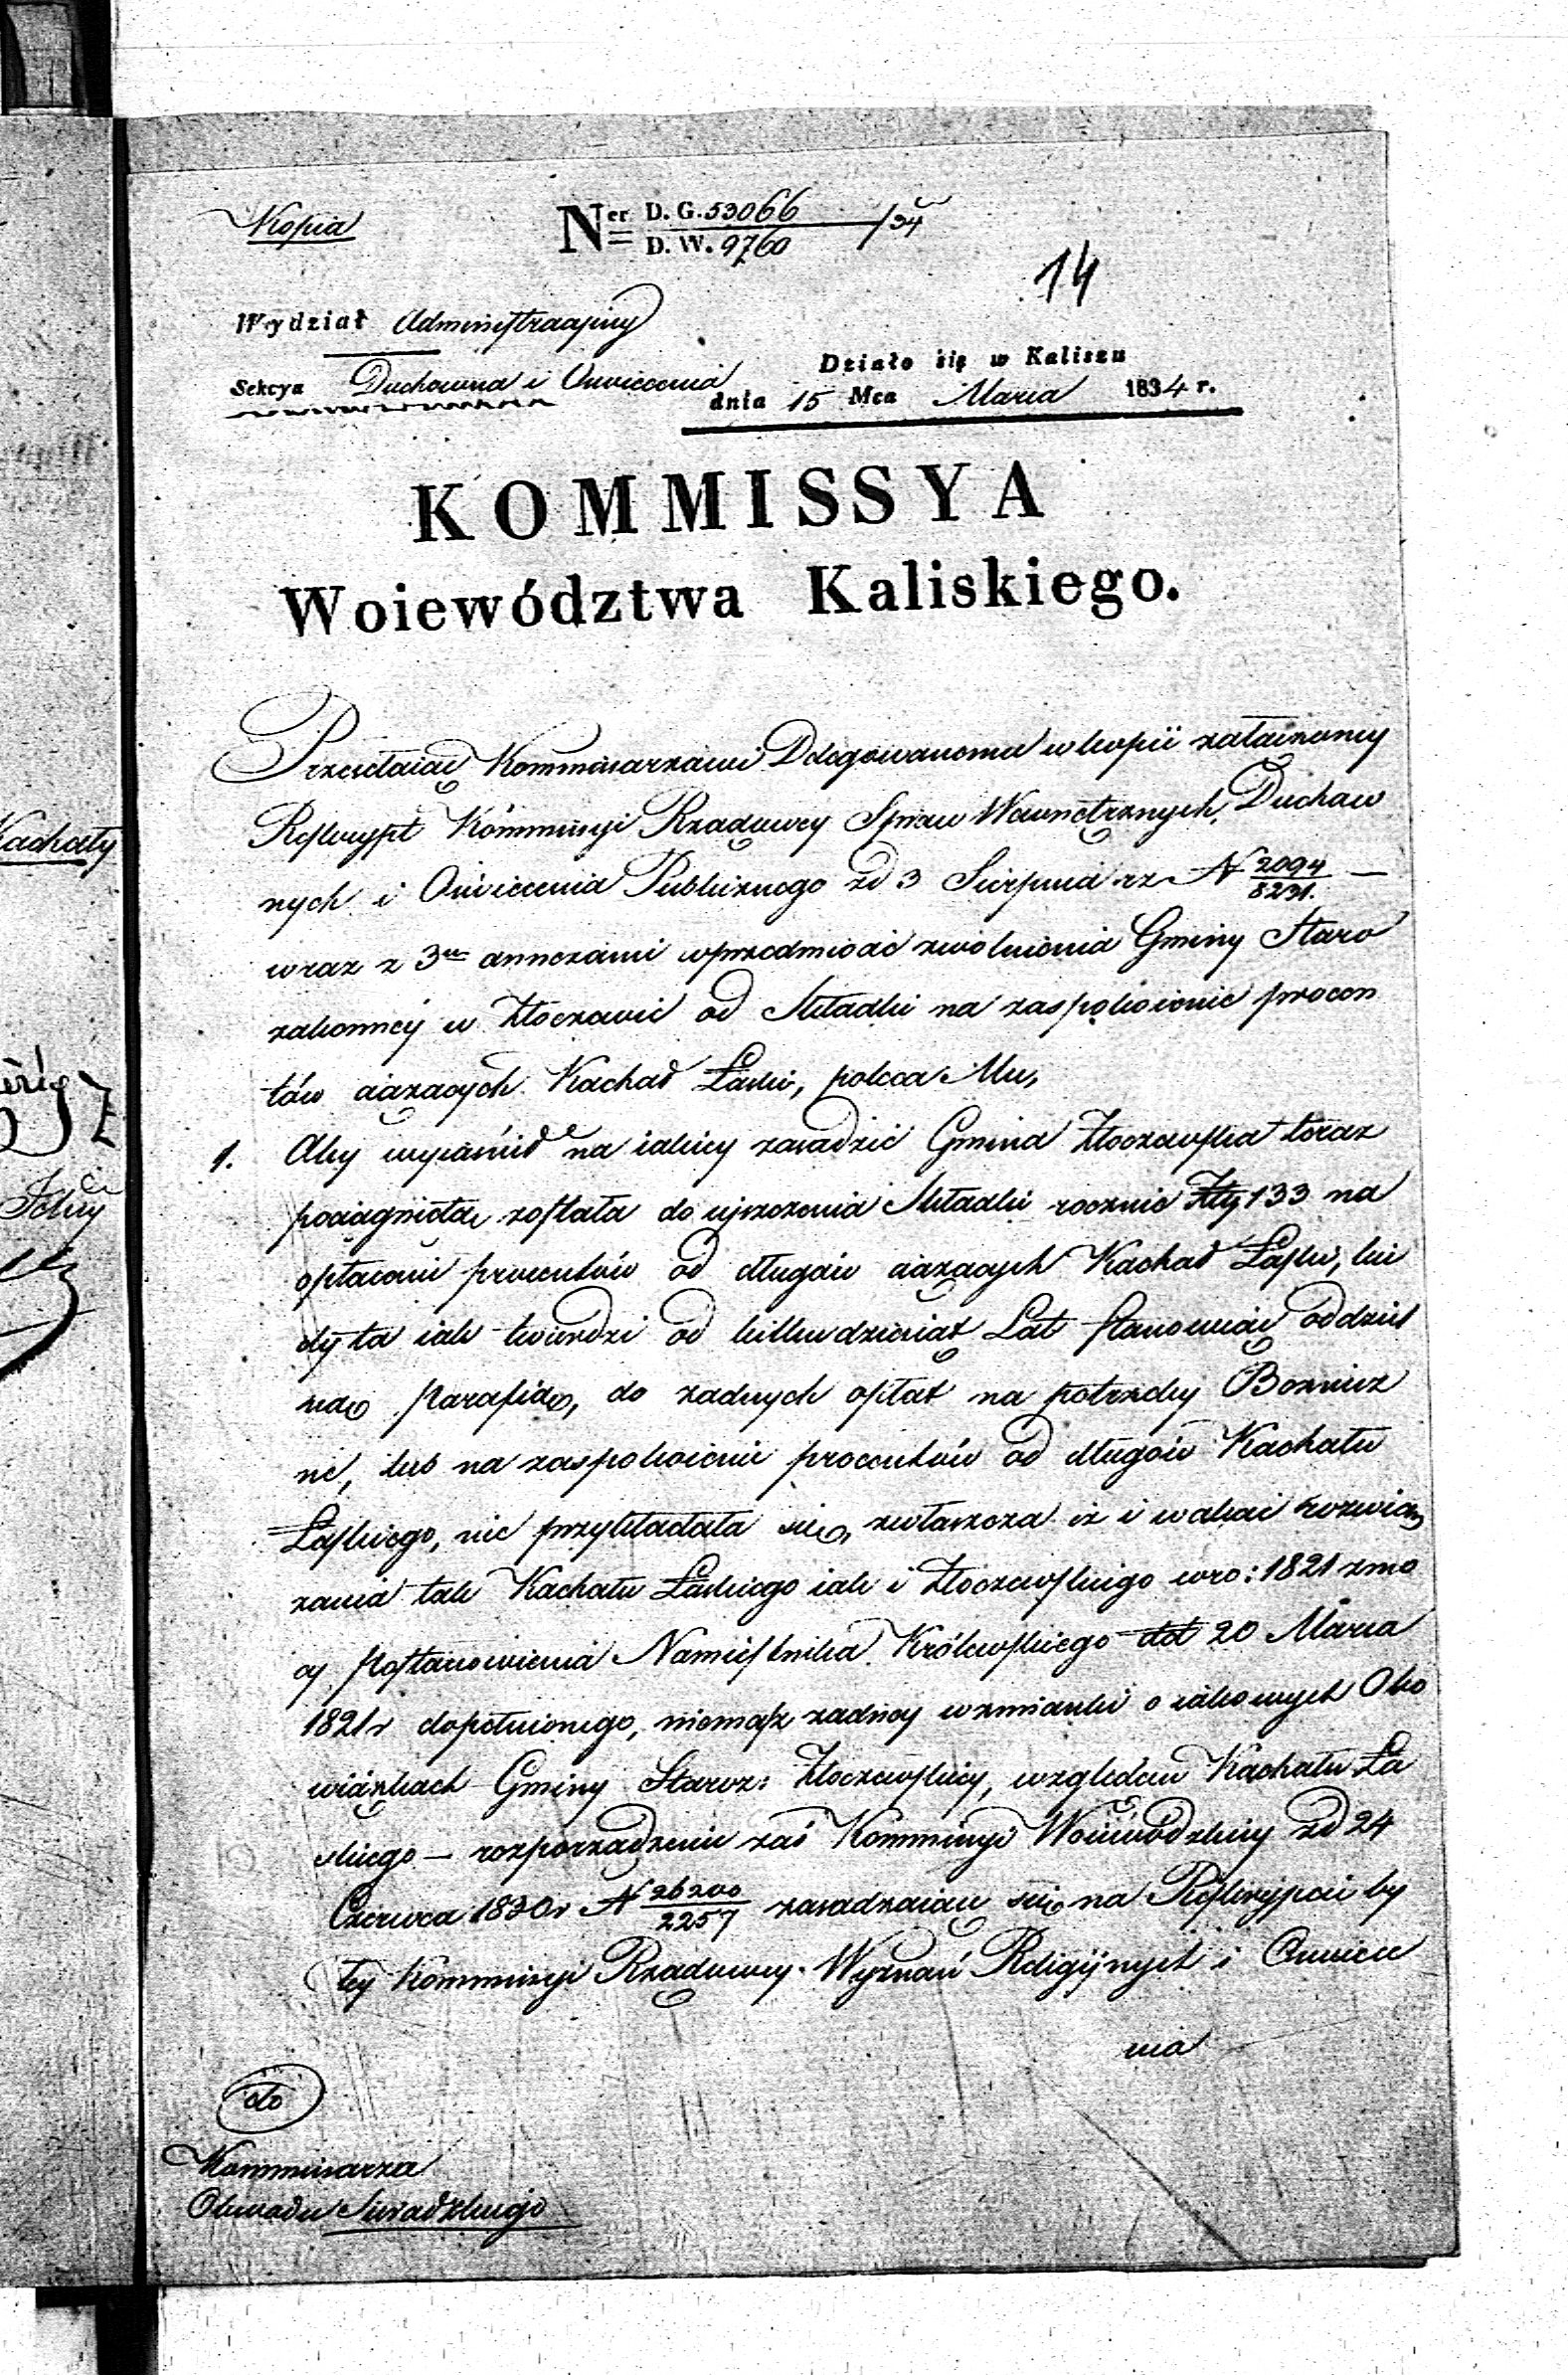 Kopia
Ner D. G. 53066 / D. W. 9760 /34
14
Wydział Administracyiny
Działo się w Kaliszu
Sekcya Duchowna i Oswiecenia
dnia 15 Mca Marca 1834 r.
KOMMISSYA
Woiewództwa Kaliskiego.
Przesełaiąc Kommissarzowi Delegowanemu w kopii załaczoney
Reskrypt Kommissyi Rządowey Spraw Wewnętrznych, Duchow
nych i Oświecenia Publicznego zd 3 Sierpnia rz N 2094/8231. —
wraz z 3ma annexami wprzedmiocie zwolnienia Gminy Staro
zakonney w Złoczewie od Składki na zaspokoienie procen
tów ciążących Kachał Łaski, poleca Mu,
1. Aby wyiaśnił na iakiey zasadzie Gmina Złoczewska teraz
pociągnięta została do uiszczenia Składki rocznie Złtp 133 na
opłacanie procentów od długów ciążących Kachał Łaski, kie
dy ta iak twierdzi od kilkudziesiąt Lat stanowiąc oddziel
ną Parafią, do żadnych opłat na potrzeby Boznicz
ne, lub na zaspokoienie procentów od długów Kachału
Łaskiego, nie przykładała się, zwłaszcza iż i w akcie rozwią
zania tak Kachału Łaskiego iak i Złoczewskiego wro: 1821 z mo
cy Postanowienia Namiestnika Królewskiego dd 20 Marca
1821 r dopełnionego, niemasz żadney wzmianki o iakowych Obo
wiązkach Gminy Staroz: Złoczewskiey, względem Kachału Ła
skiego — rozporządzenie zaś Kommissyi Woiewódzkiey zd 24
Czerwca 1830 r N 26200/2257 zasadzaiąc się na Reskrypcie by
łey Kommissyi Rządowey Wyznań Religiynych i Oswiece
nia
do
Kommissarza
Obwodu Sieradzkiego
Kachały